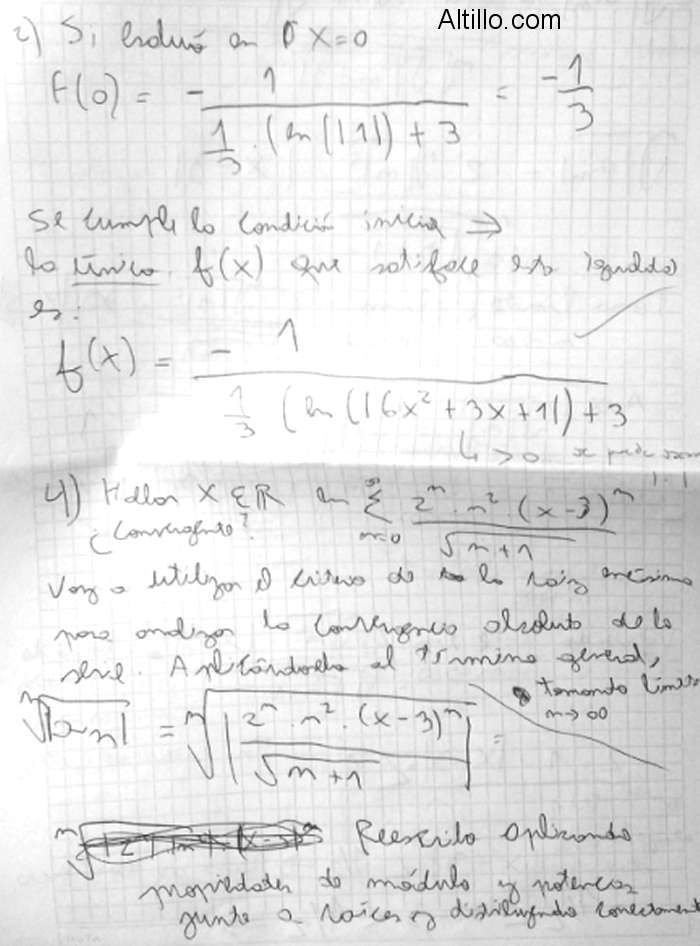 Altillo.com
2) Si evaluó en x=0
f(0) = - 1 / (1/3 . (ln(|1|) + 3) = -1/3
Se cumple la condición inicial ⇒
la única f(x) que satisface esta igualdad
es:
f(x) = - 1 / (1/3 (ln(|6x² + 3x + 1|) + 3
↳ > 0 se puede
4) Hallar x ∈ ℝ en Σ n=0 2^n . n² . (x-3)^n / √n+1
¿Convergente?
Voy a utilizar el criterio de la raíz enésima
para analizar la convergencia absoluta de la
serie. Aplicándola al término general,
tomando límite
n→∞
ⁿ√|an| = ⁿ√| 2^n . n² . (x-3)^n / √n+1 | =
Reescribo aplicando
propiedades de módulo y potencias
junto a raíces y distribuyendo correctamente